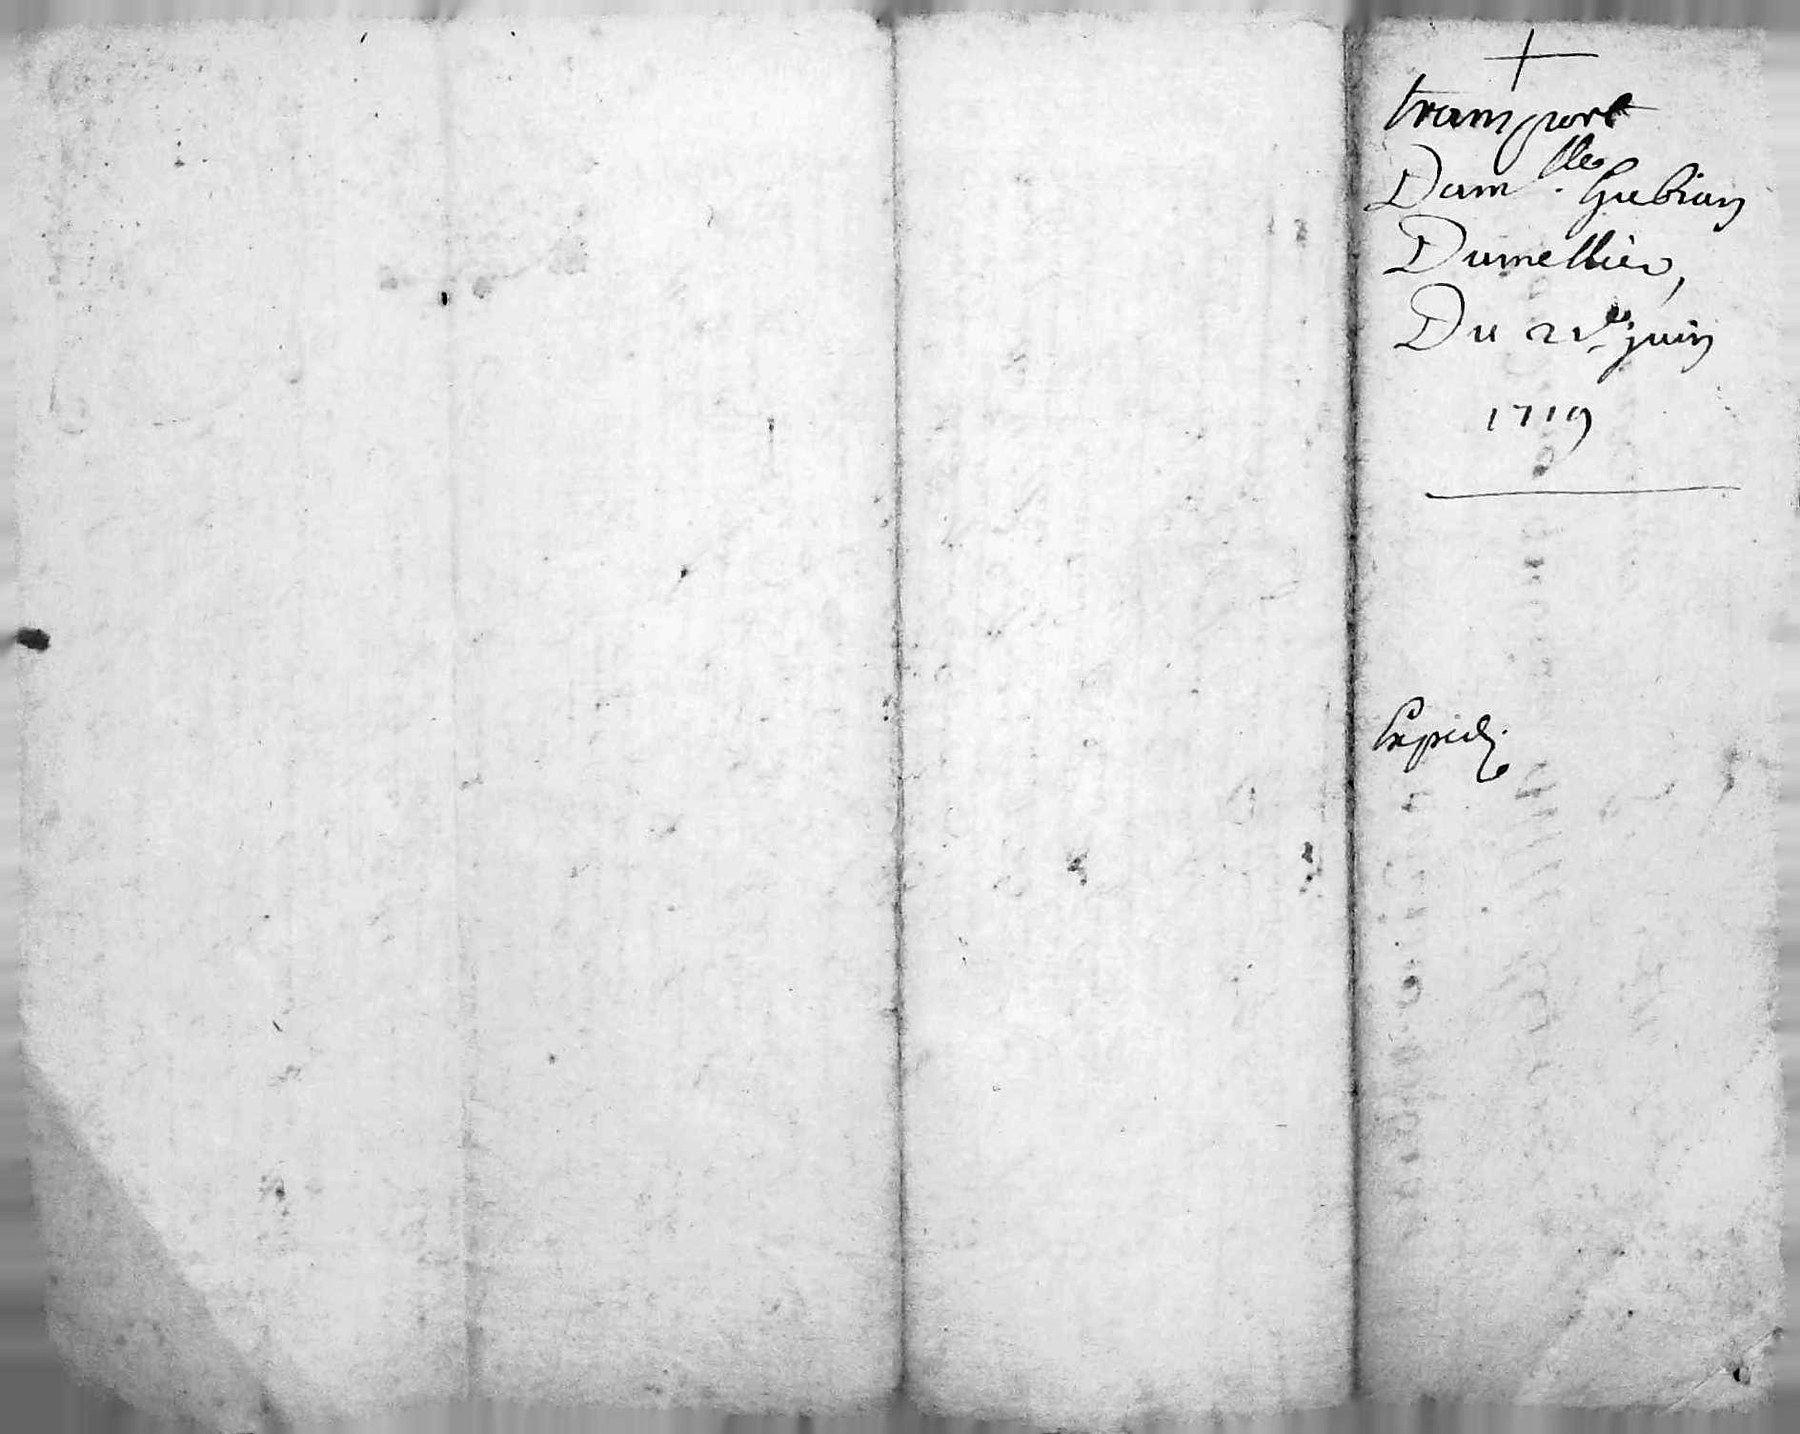 +
transport
Dam.lle Gubian
Dumellier,
Du 21e juin
1719
Expied.